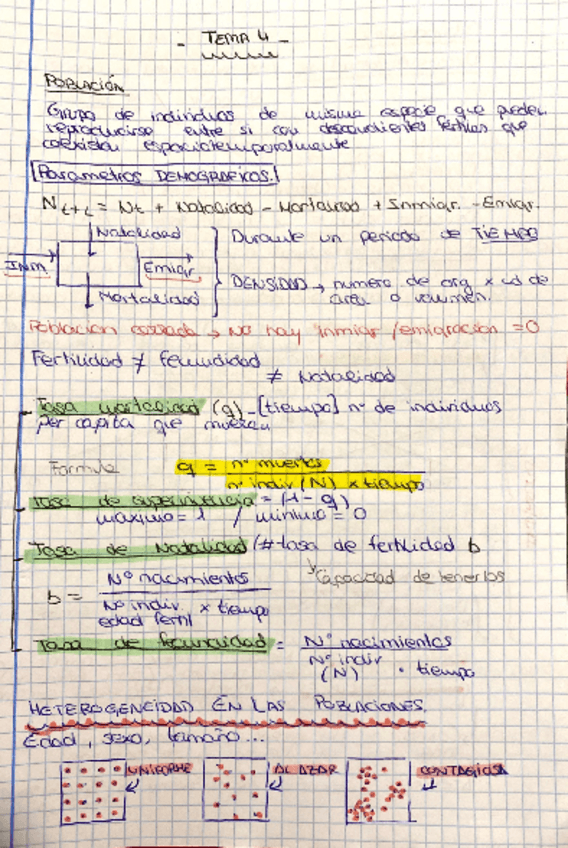 - TEMA 4 -
POBLACIÓN
Grupo de individuos de misma especie que pueden
reproducirse entre sí con descendientes fértiles que
coexisten espaciotemporalmente
Parámetros DEMOGRÁFICOS.
Nt+1 = Nt + Natalidad - Mortalidad + Inmigr. - Emigr.
Natalidad
Durante un periodo de TIEMPO
INM
Emigr
DENSIDAD → numero de org x ud de
área o volumen.
Mortalidad
Poblacion cerrada → No hay inmigr / emigración = 0
Fertilidad ≠ fecundidad
≠ Natalidad
Tasa mortalidad (q) - [tiempo] nº de individuos
per capita que mueren
Formula
q = nº muertes
nº indiv (N) x tiempo
Tasa de supervivencia = (1 - q)
maximo = 1 / minimo = 0
Tasa de Natalidad (# tasa de fertilidad b
Capacidad de tenerlos
b = Nº nacimientos
Nº indiv x tiempo
edad fertil
Tasa de fecundidad = Nº nacimientos
Nº indiv · tiempo
(N)
HETEROGENEIDAD EN LAS POBLACIONES.
Edad, sexo, tamaño...
UNIFORME
AL AZAR
CONTAGIOSA